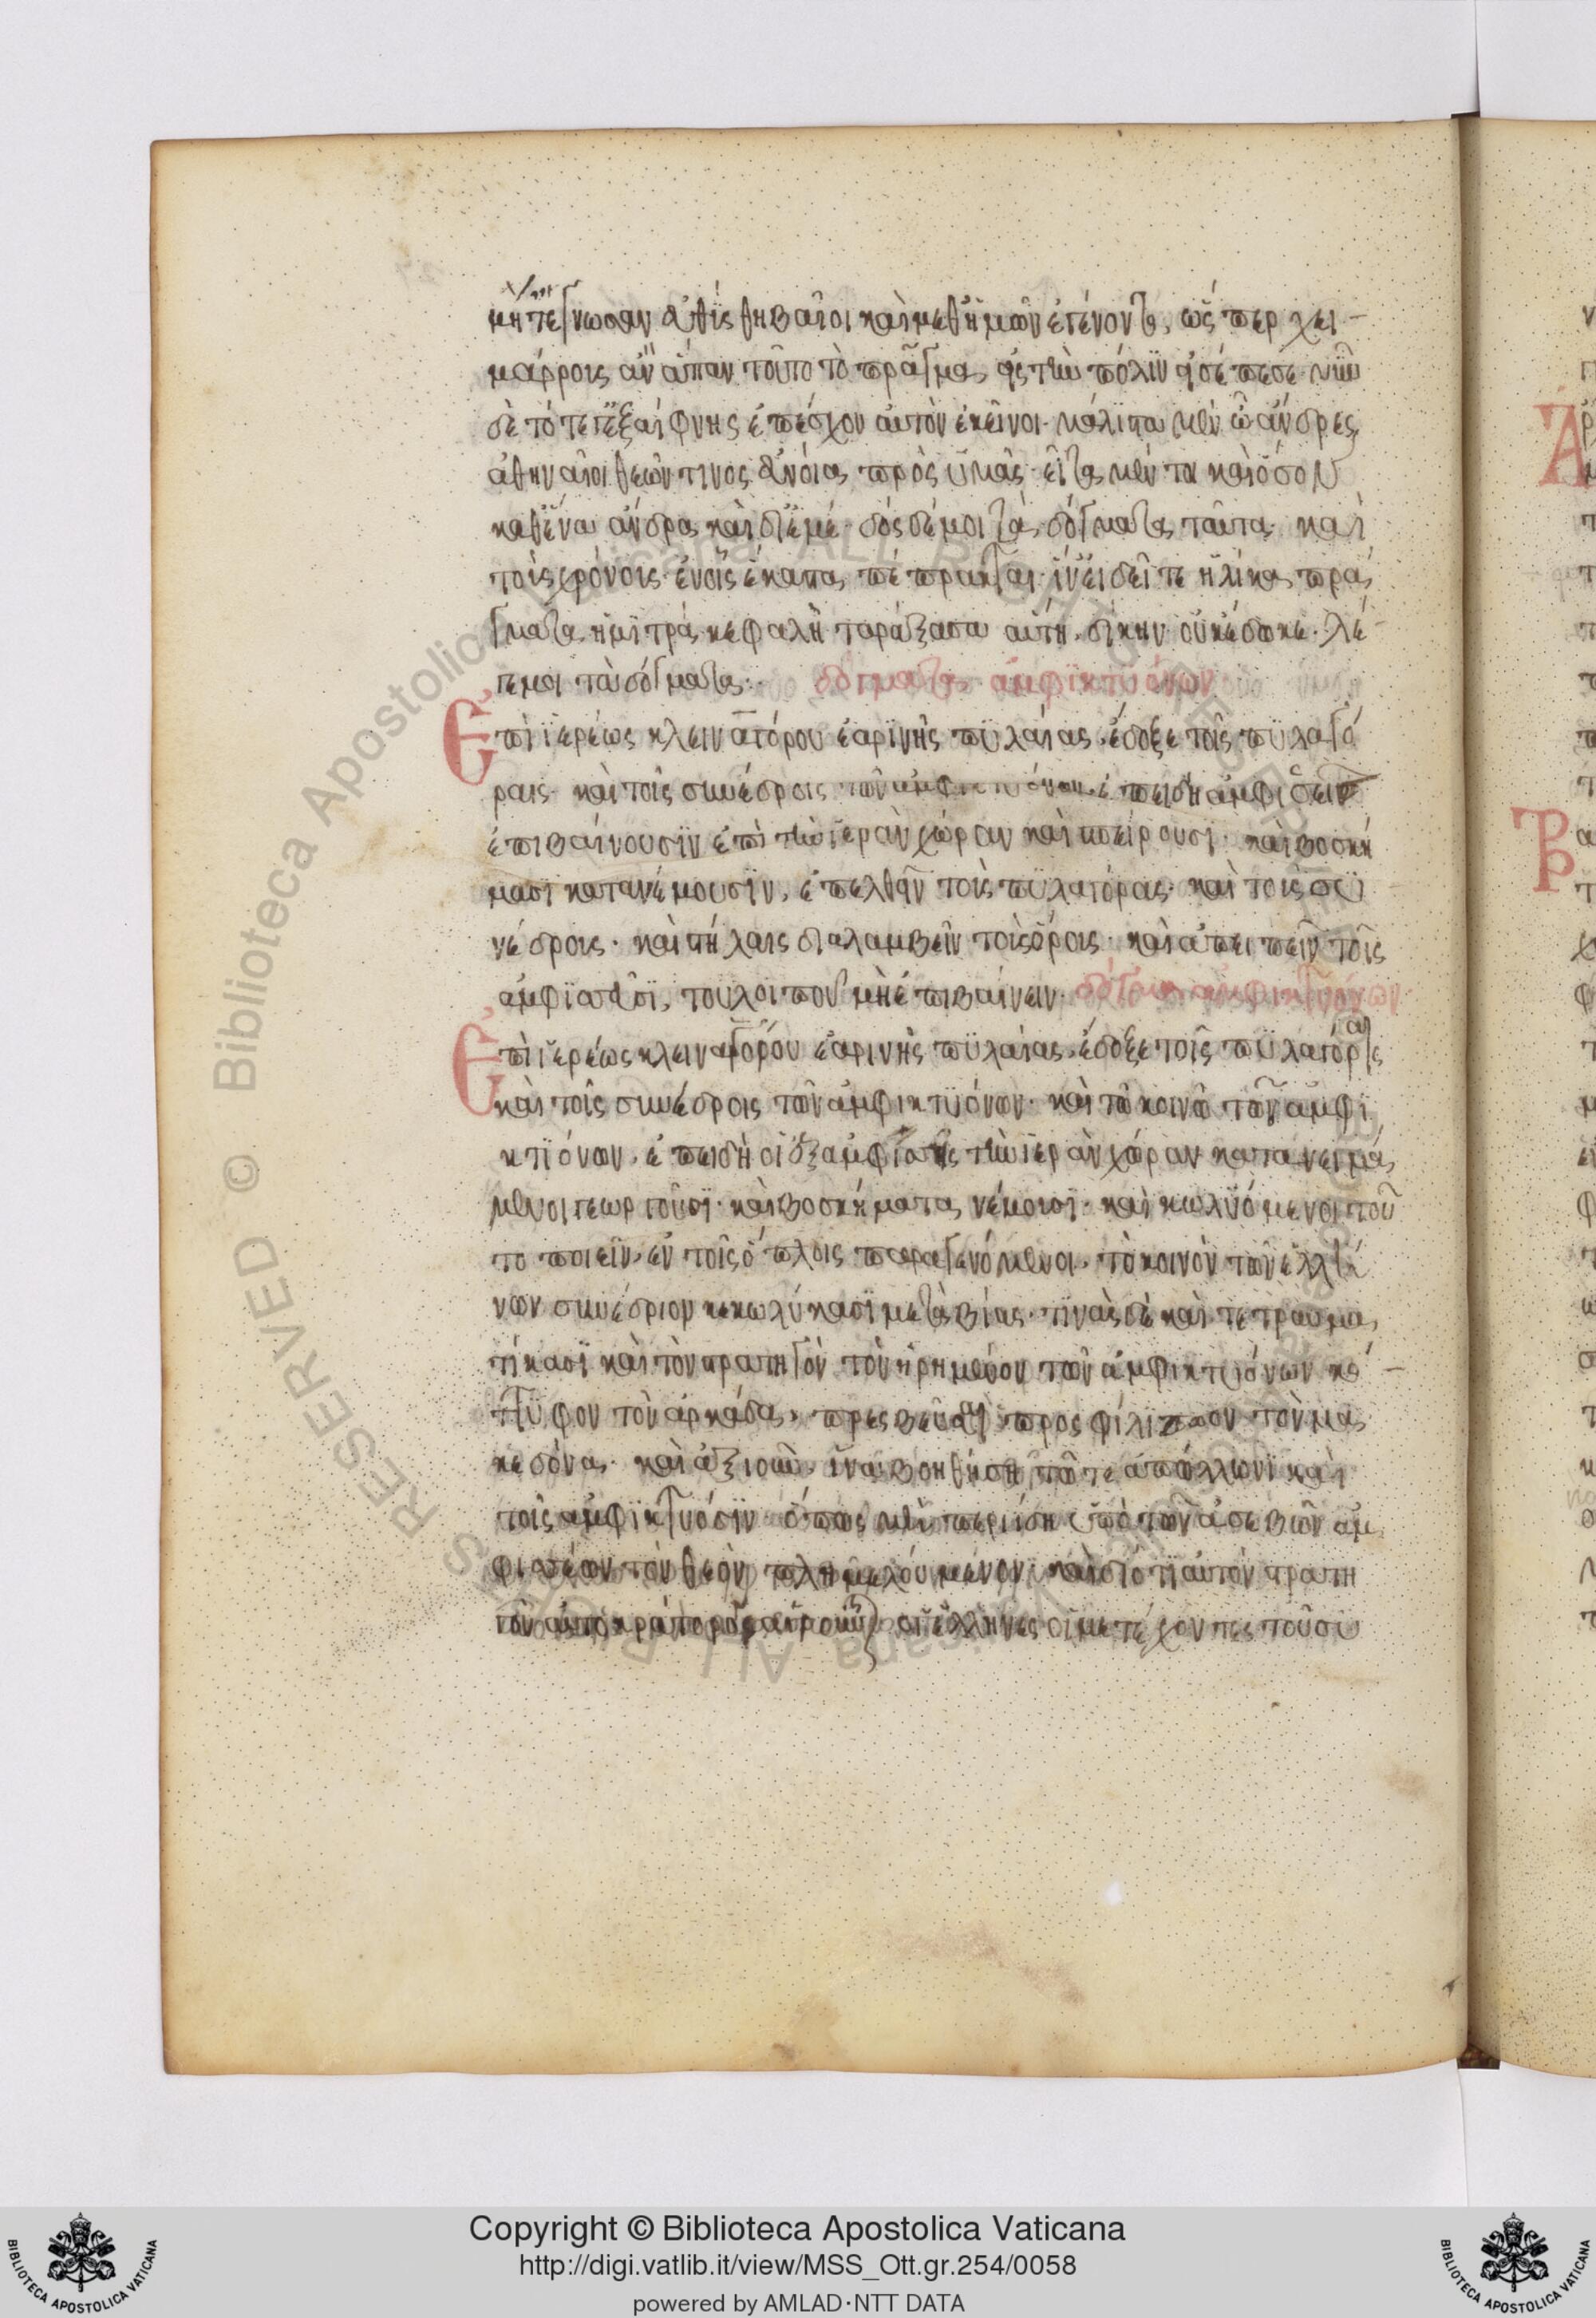 μὴ μετέγνωσαν εὐθὺς θηβαῖοι καὶ μεθ' ἡμῶν ἐγένοντο, ὥσπερ χει
μάρρους ἂν ἅπαν τοῦτο τὸ πρᾶγμα εἰς τὴν πόλιν εἰσέπεσε· νῦν
δὲ τό γε ἐξαίφνης ἐπέσχον αὐτὸν ἐκεῖνοι· μάλιστα μὲν ὦ ἄνδρες
ἀθηναῖοι θεῶν τινος εὐνοία πρὸς ὑμᾶς· εἶτα μέντοι καὶ ὅσον
καθ' ἕνα ἄνδρα καὶ δι' ἐμέ· δὸς δέ μοι τὰ δόγματα ταῦτα· καὶ
τοὺς χρόνους ἐν οἷς ἕκαστα πέπρακται· ἵν' εἰδῆτε ἡλίκα πρά
γματα ἡ μιαρὰ κεφαλὴ ταράξασα αὕτη, δίκην οὐκ ἔδωκε· λέ
γε μοι τὰ δόγματα·. δόγματα ἀμφικτυόνων
Ἐπὶ ἱερέως κλειναγόρου ἐαρινῆς πυλαίας, ἔδοξε τοῖς πυλαγό
ραις· καὶ τοῖς συνέδροις τῶν ἀμφικτυόνων, ἐπειδὴ ἀμφισσεῖς
ἐπιβαίνουσιν ἐπὶ τὴν ἱερὰν χώραν καὶ σπείρουσι· καὶ βοσκή
μασι κατανέμουσιν, ἐπελθεῖν τοὺς πυλαγόρας· καὶ τοὺς συ
νέδρους· καὶ στήλαις διαλαμβεῖν τοὺς ὅρους· καὶ ἀπειπεῖν τοῖς
ἀμφισσεῦσι, τοῦ λοιποῦ μὴ ἐπιβαίνειν· δόγμα ἀμφικτυόνων
Ἐπὶ ἱερέως κλειναγόρου ἐαρινῆς πυλαίας, ἔδοξε τοῖς πυλαγόραις
καὶ τοῖς συνέδροις τῶν ἀμφικτυόνων· καὶ τῶ κοινῶ τῶν ἀμφι
κτιόνων, ἐπειδὴ οἱ ἐξ ἀμφίσσης τὴν ἱερὰν χώραν κατανειμά
μενοι γεωργοῦσι· καὶ βοσκήματα νέμουσι· καὶ κωλυόμενοι τοῦ
το ποιεῖν, ἐν τοῖς ὅπλοις παραγενόμενοι, τὸ κοινὸν τῶν ἑλλή
νων συνέδριον κεκωλύκασι μετὰ βίας· τινὰς δὲ καὶ τετραυμα
τίκασι καὶ τὸν στρατηγὸν τὸν ἡρημένον τῶν ἀμφικτυόνων κό
ττυφον τὸν ἀρκάδα, πρεσβεῦσαι πρὸς φίλιππον τὸν μα
κεδόνα· καὶ ἀξιοῦν, ἵνα βοηθήση τῶ τε ἀπόλλωνι καὶ
τοῖς ἀμφικτυόσιν ὅπως μὴ περιίδη ὑπὸ τῶν ἀσεβῶν ἀμ
φισσέων τὸν θεὸν πλημμελούμενον· καὶ διότι αὐτὸν στρατη
γὸν αὐτοκράτορα αἱροῦνται οἱ ἕλληνες οἱ μετέχοντες τοῦ συ
Copyright © Biblioteca Apostolica Vaticana
http://digi.vatlib.it/view/MSS_Ott.gr.254/0058
powered by AMLAD·NTT DATA